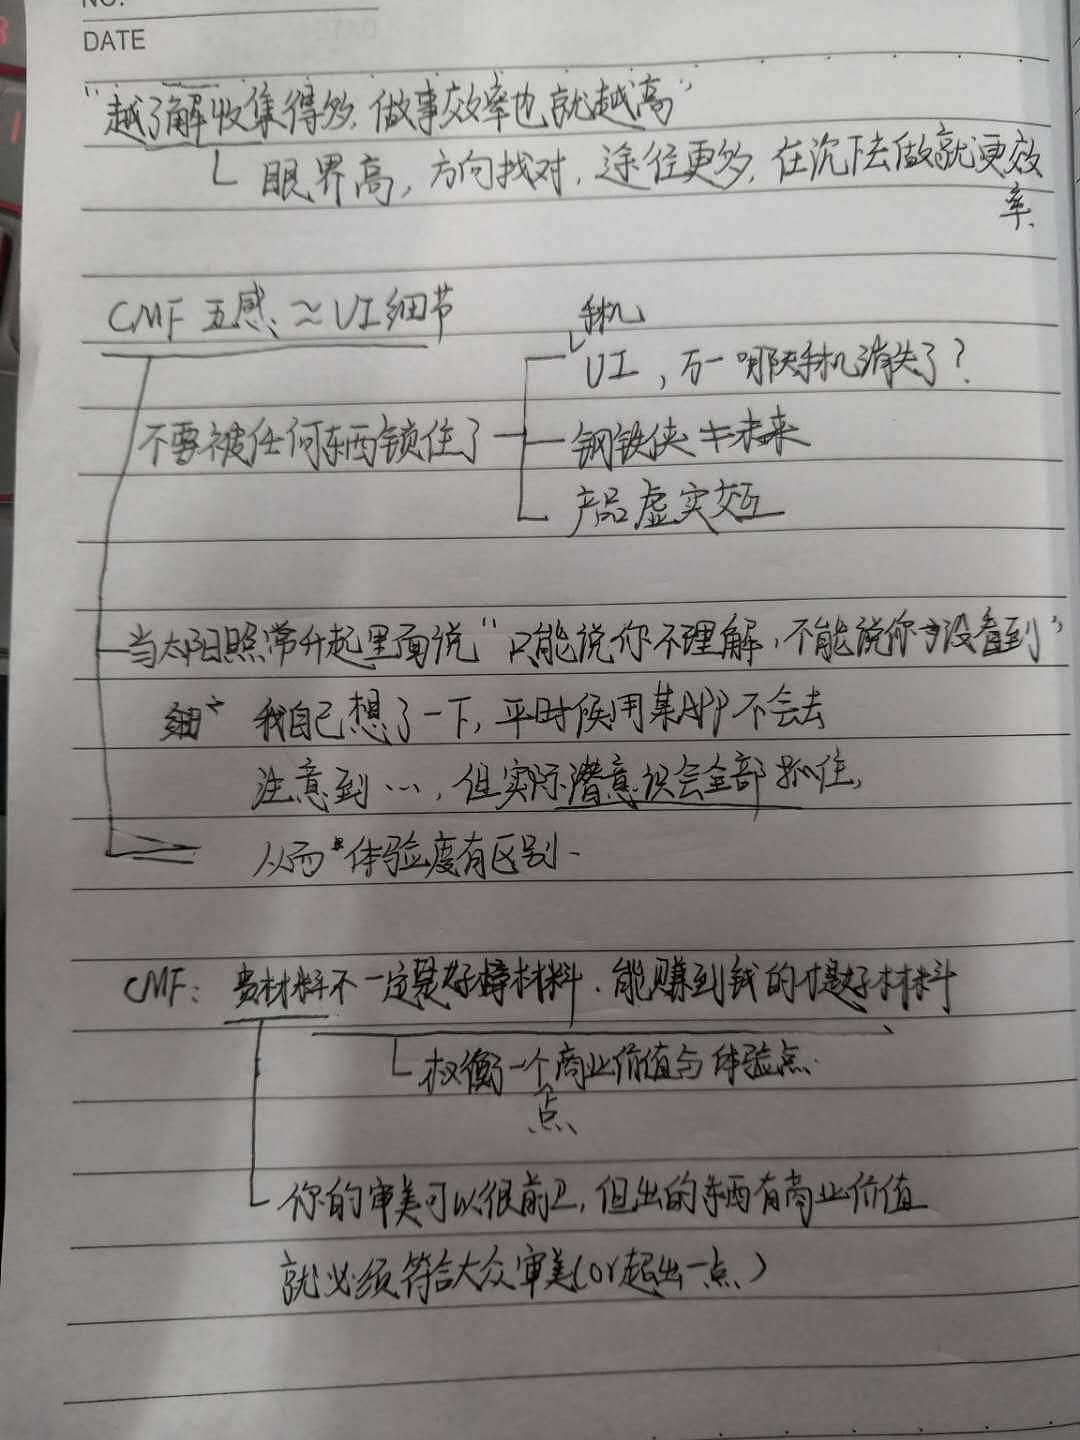 NO.
DATE
"越了解收集得多,做事效率也就越高"
眼界高,方向找对,途径更多,在沉下去做就更效
率.
CMF 五感 ≈ UI细节
手机
UI,万一哪天手机消失了?
不要被任何东西锁住了
钢铁侠 未来
产品虚实交互
当太阳照常升起里面说"只能说你不理解,不能说你没看到"
我自己想了一下,平时候用某APP不会去
注意到…,但实际潜意识会全部抓住,
从而 体验度有区别.
CMF: 贵材料不一定是好材料.能赚到钱的才是好材料
权衡一个商业价值与体验点.
点
你的审美可以很前卫,但出的东西有商业价值
就必须符合大众审美(or超出一点)